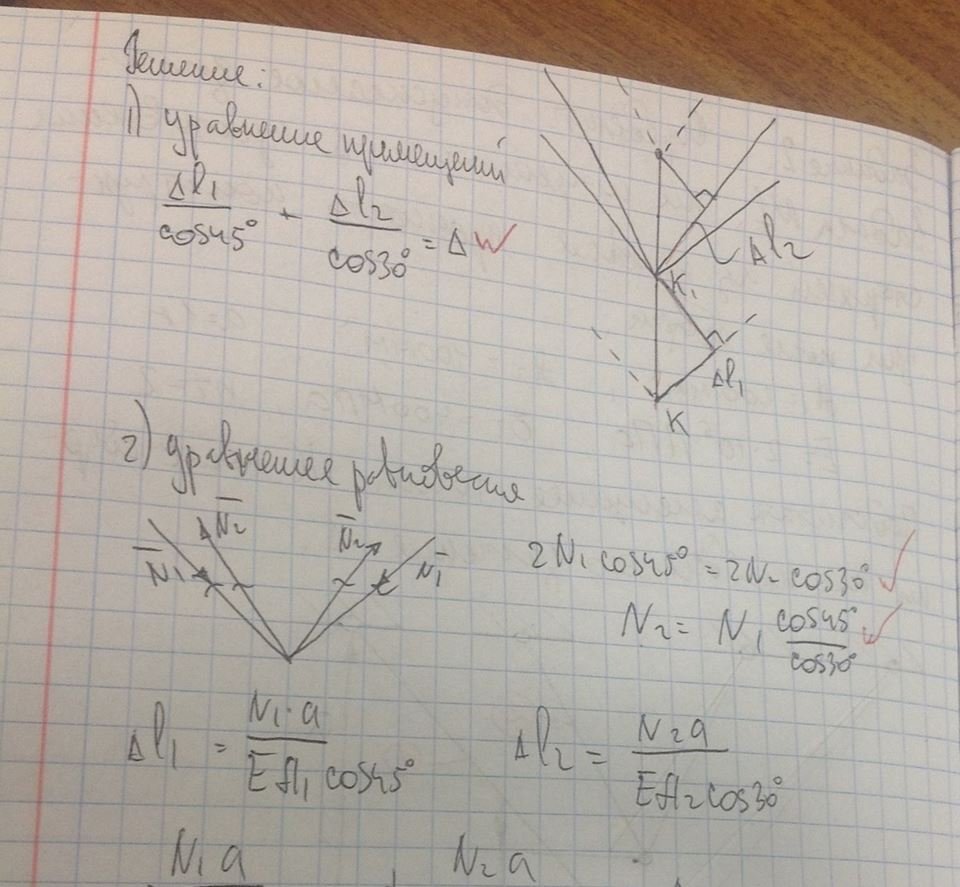 Решение:
1) уравнение примещений
Δl₁/cos45° + Δl₂/cos30° = Δ
Δl₂
K₁
Δl₁
K
2) уравнение равновесия
N̄₁ N̄₂ N̄₂ N̄₁
2N₁cos45° = 2N₂cos30°
N₂ = N₁ cos45°/cos30°
Δl₁ = N₁·a/EA₁cos45° Δl₂ = N₂a/EA₂cos30°
N₁a N₂a